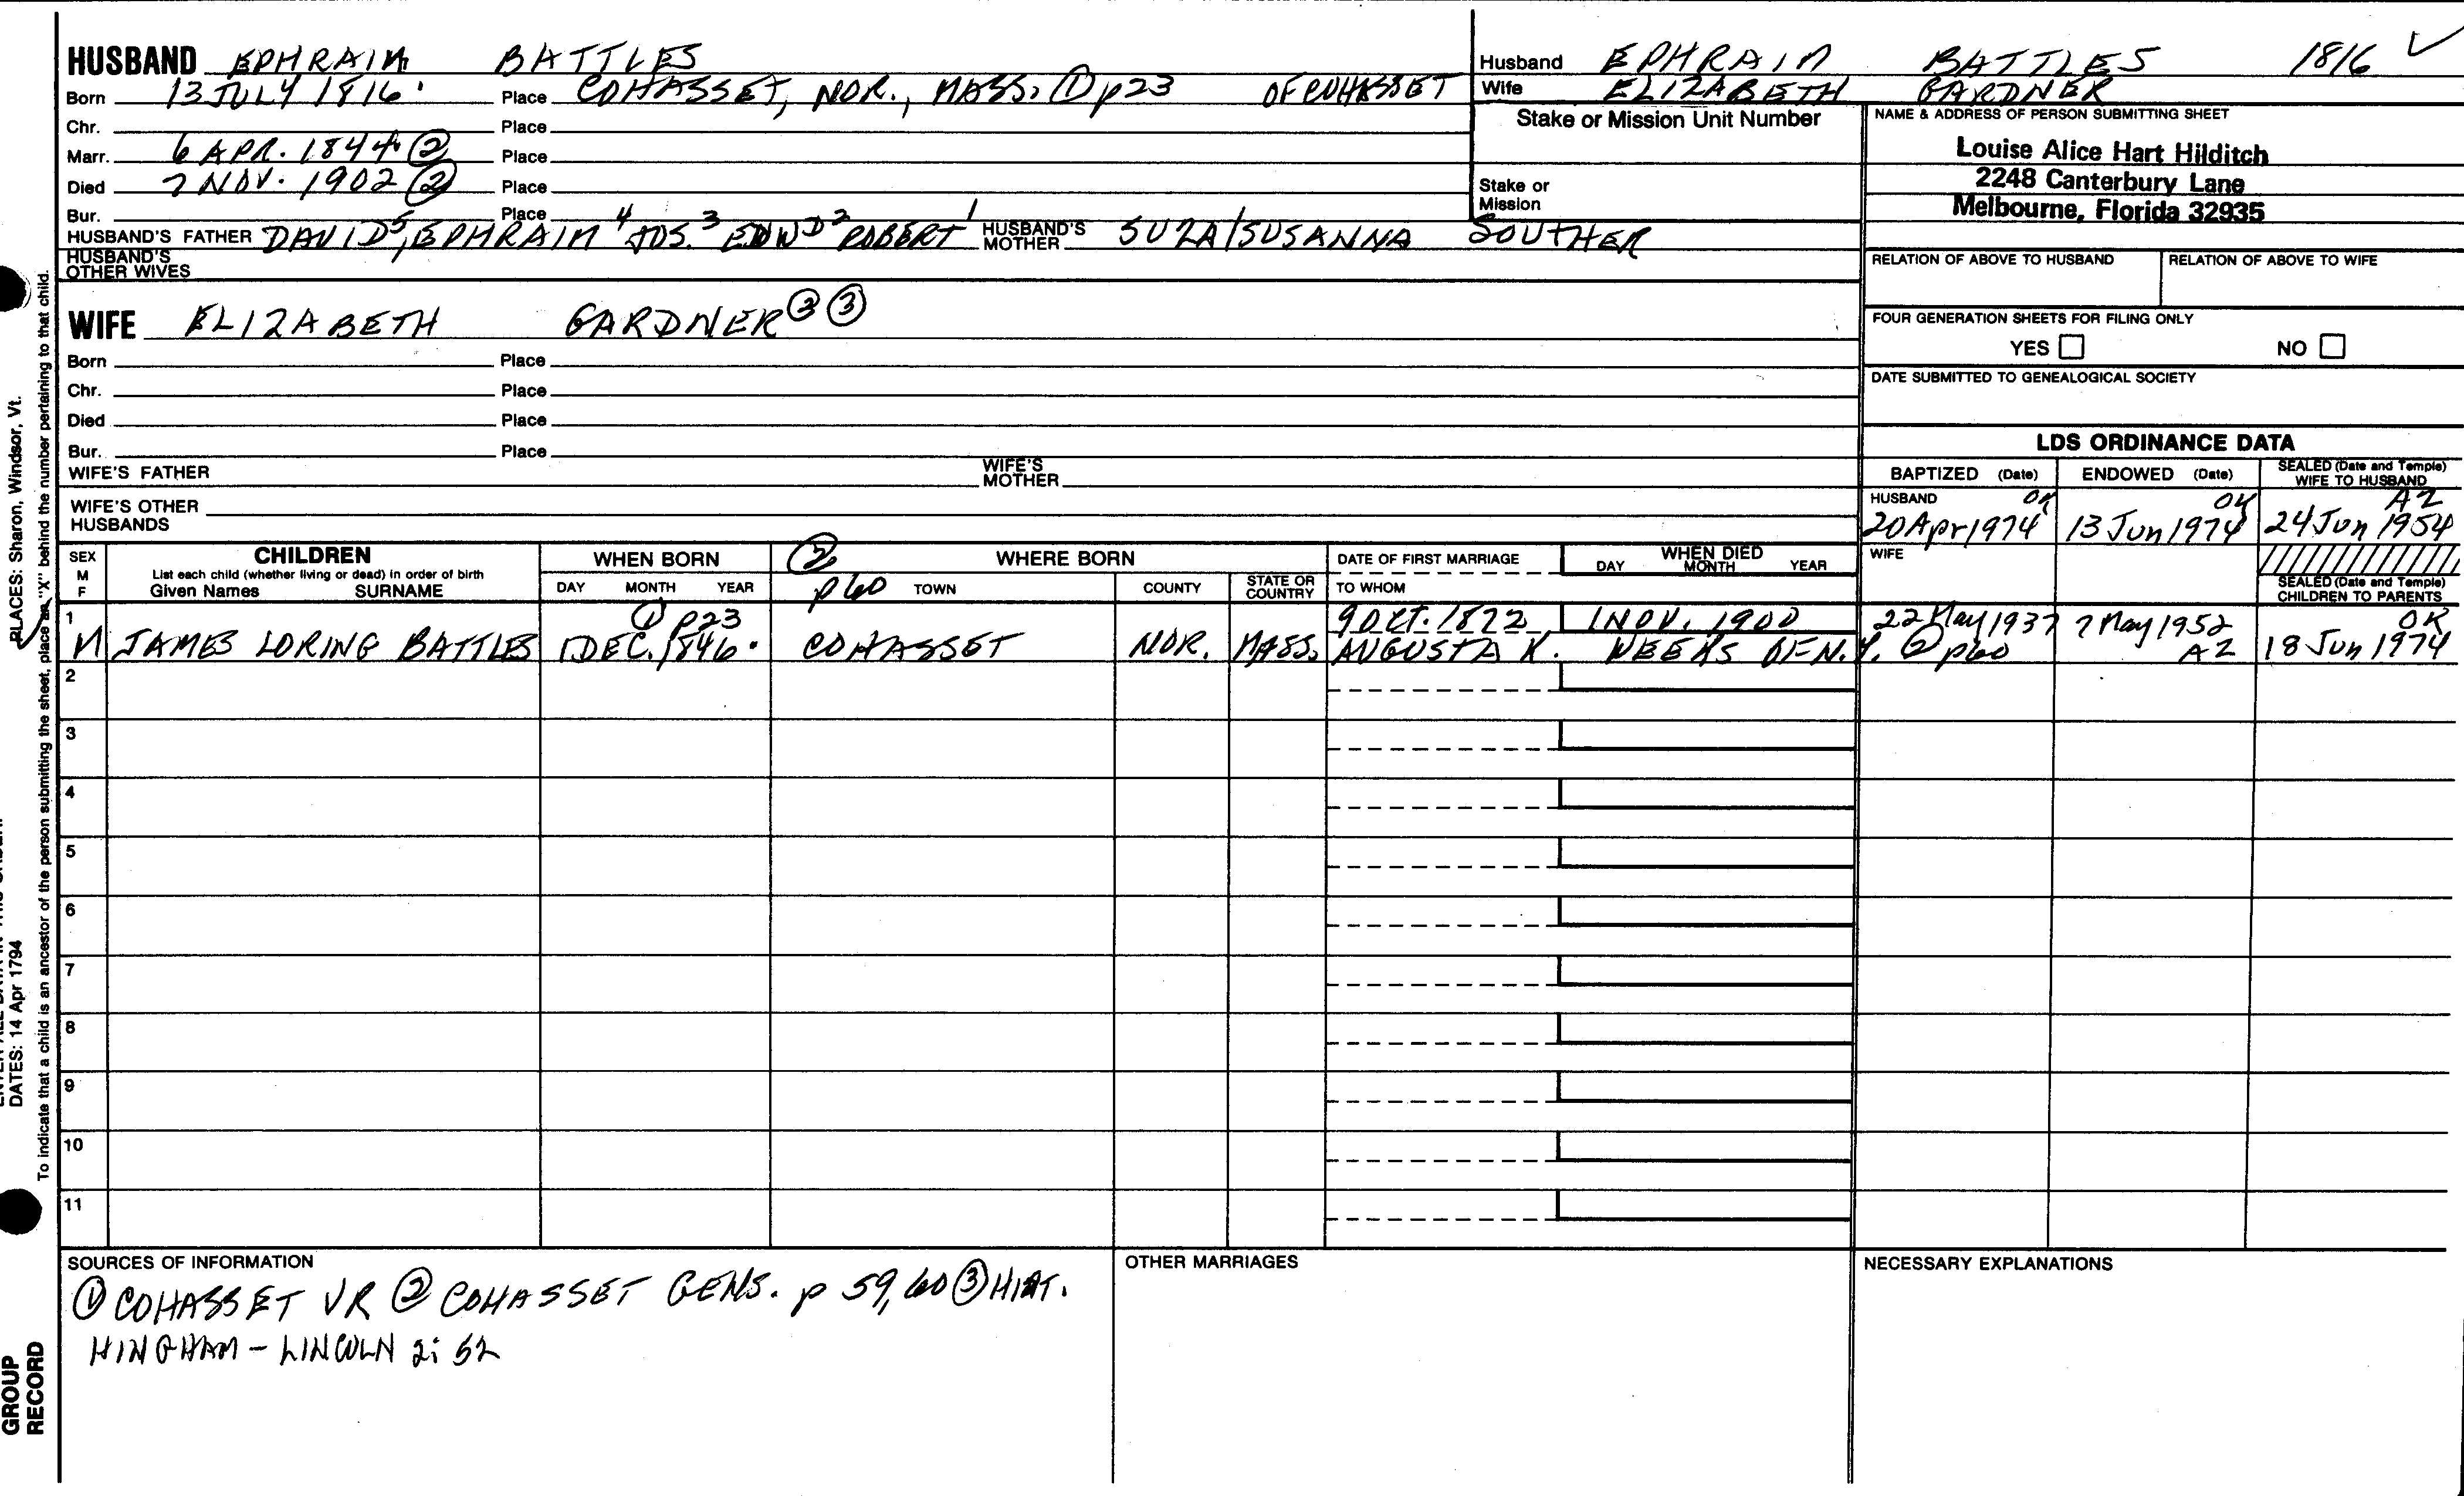 HUSBAND EPHRAIM BATTLES
Born 13 JULY 1816 Place COHASSET, NOR., MASS. ① p23 OF COHASSET
Chr. Place
Marr. 6 APR. 1844 ② Place
Died 7 NOV. 1902 ② Place
Bur. Place
HUSBAND'S FATHER DAVID⁵, EPHRAIM⁴ JOS.³ EDWD² ROBERT¹ HUSBAND'S MOTHER SUZA/SUSANNA SOUTHER
HUSBAND'S OTHER WIVES
Husband EPHRAIM BATTLES 1816 ✓
Wife ELIZABETH GARDNER
Stake or Mission Unit Number
Stake or
Mission
NAME & ADDRESS OF PERSON SUBMITTING SHEET
Louise Alice Hart Hilditch
2248 Canterbury Lane
Melbourne, Florida 32935
RELATION OF ABOVE TO HUSBAND RELATION OF ABOVE TO WIFE
FOUR GENERATION SHEETS FOR FILING ONLY
YES NO
DATE SUBMITTED TO GENEALOGICAL SOCIETY
WIFE ELIZABETH GARDNER ② ③
Born Place
Chr. Place
Died Place
Bur. Place
WIFE'S FATHER WIFE'S MOTHER
WIFE'S OTHER HUSBANDS
LDS ORDINANCE DATA
BAPTIZED (Date) ENDOWED (Date) SEALED (Date and Temple) WIFE TO HUSBAND
HUSBAND OK OK AZ
20 Apr 1974 13 Jun 1974 24 Jun 1954
WIFE
SEALED (Date and Temple) CHILDREN TO PARENTS
SEX M F
CHILDREN
List each child (whether living or dead) in order of birth
Given Names SURNAME
WHEN BORN
DAY MONTH YEAR
② p60
WHERE BORN
TOWN COUNTY STATE OR COUNTRY
DATE OF FIRST MARRIAGE
TO WHOM
WHEN DIED
DAY MONTH YEAR
1 ① p23 9 OCT. 1872 1 NOV. 1900 22 May 1937 7 May 1952 OK
M JAMES LORING BATTLES 1 DEC. 1846 COHASSET NOR. MASS. AUGUSTA K. WEEKS OF N.Y. ② p60 AZ 18 Jun 1974
2
3
4
5
6
7
8
9
10
11
SOURCES OF INFORMATION
① COHASSET VR ② COHASSET GENS. p 59, 60 ③ HIST.
HINGHAM - LINCOLN 2: 52
OTHER MARRIAGES
NECESSARY EXPLANATIONS
PLACES: Sharon, Windsor, Vt.
DATES: 14 Apr 1794
To indicate that a child is an ancestor of the person submitting the sheet, place an "X" behind the number pertaining to that child.
GROUP
RECORD